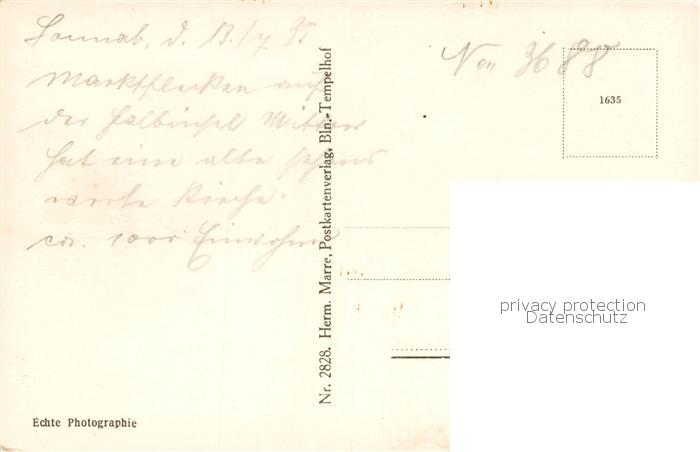 Sonnab. d. 13./7 35
Marktflecken auf
der Halbinsel
hat eine alte sehens
werte Kirche.
ca. 1000 Einwohner
Echte Photographie
Nr. 2828. Herm. Marre, Postkartenverlag, Bln.-Tempelhof
1635
privacy protection
Datenschutz